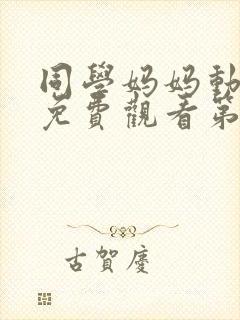 同學媽媽動
免費觀看第
古賀慶